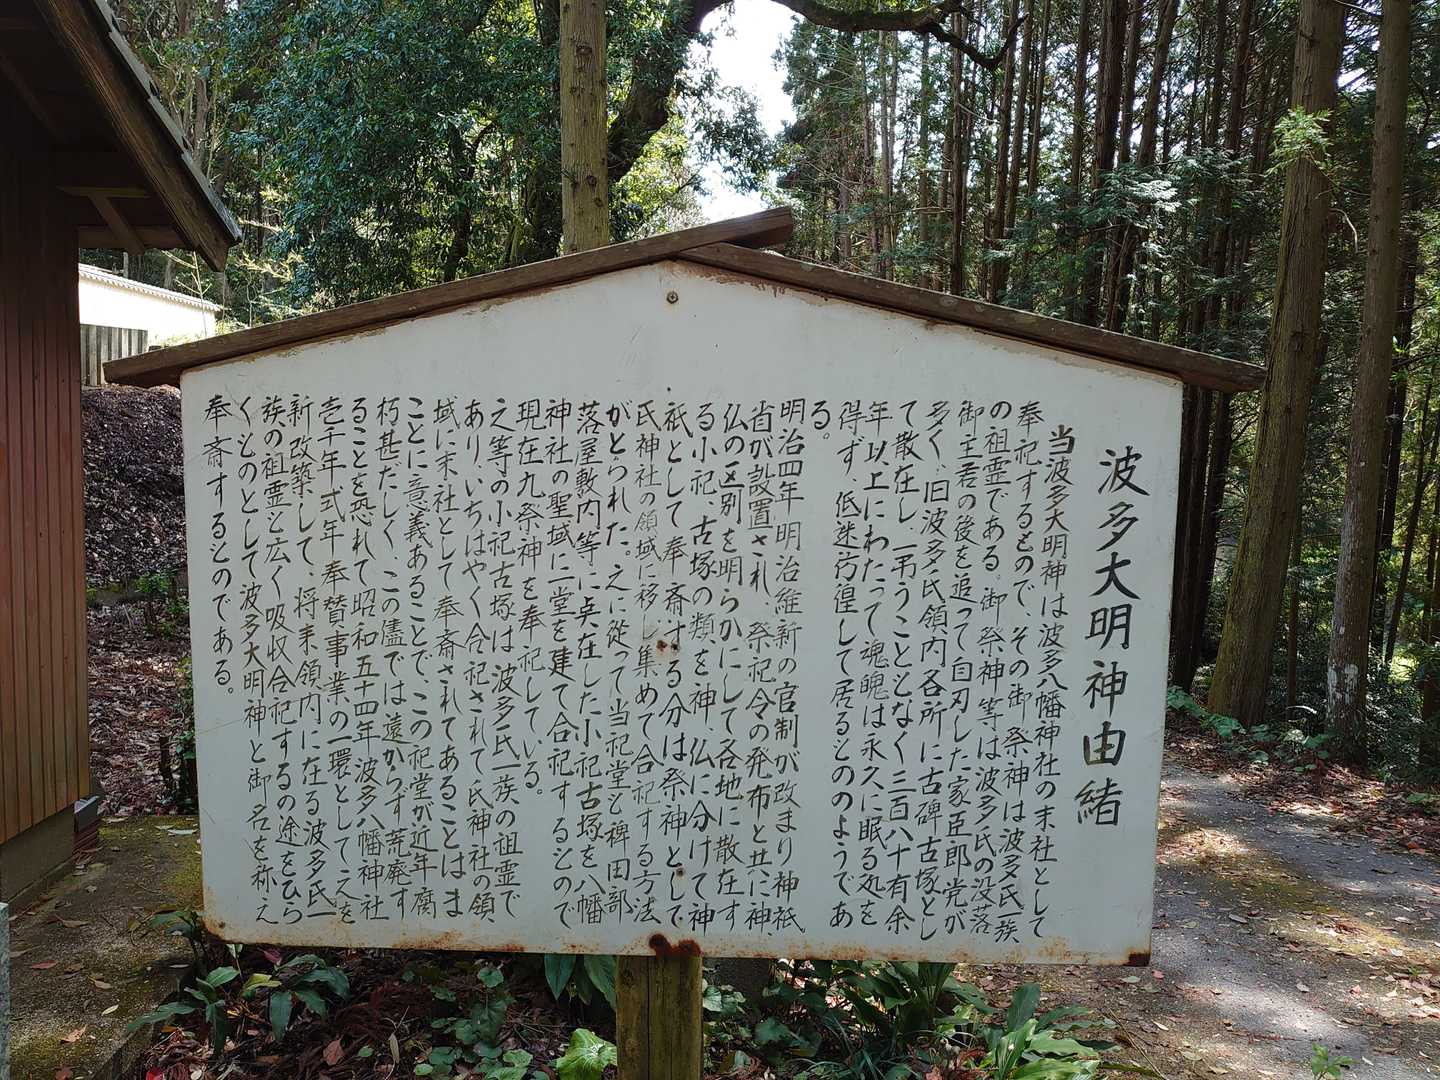 波多大明神由緒
当波多大明神は波多八幡神社の末社として
奉祀するもので、その御祭神は波多氏一族
の祖霊である。御祭神等は波多氏の没落
御主君の後を追って自刃した家臣郎党が
多く、旧波多氏領内各所に古碑古塚とし
て散在し、弔うこともなく三百八十有余
年以上にわたって魂魄は永久に眠る処を
得ず、低迷彷徨して居るもののようであ
る。
明治四年明治維新の官制が改まり神祇
省が設置され、祭祀令の発布と共に神、
仏の区別を明らかにして各地に散在す
る小祀、古塚の類を神、仏に分けて神
祇として奉斎する分は祭神として
氏神社の領域に移し集めて合祀する方法
がとられた。之に従って当祀堂も稗田部
落屋敷内等に点在した小祀古塚を八幡
神社の聖域に一堂を建て合祀するもので
現在九祭神を奉祀している。
之等の小祀古塚は波多氏一族の祖霊で
あり、いちはやく合祀されて氏神社の領
域に末社として奉斎されてあることはま
ことに意義あることで、この祀堂が近年腐
朽甚だしく、この儘では遠からず荒廃す
ることを恐れて昭和五十四年波多八幡神社
壱千年式年奉賛事業の一環として之を
新改築して、将来領内に在る波多氏一
族の祖霊も広く吸収合祀するの途をひら
くものとして波多大明神と御名を称え
奉斎するものである。